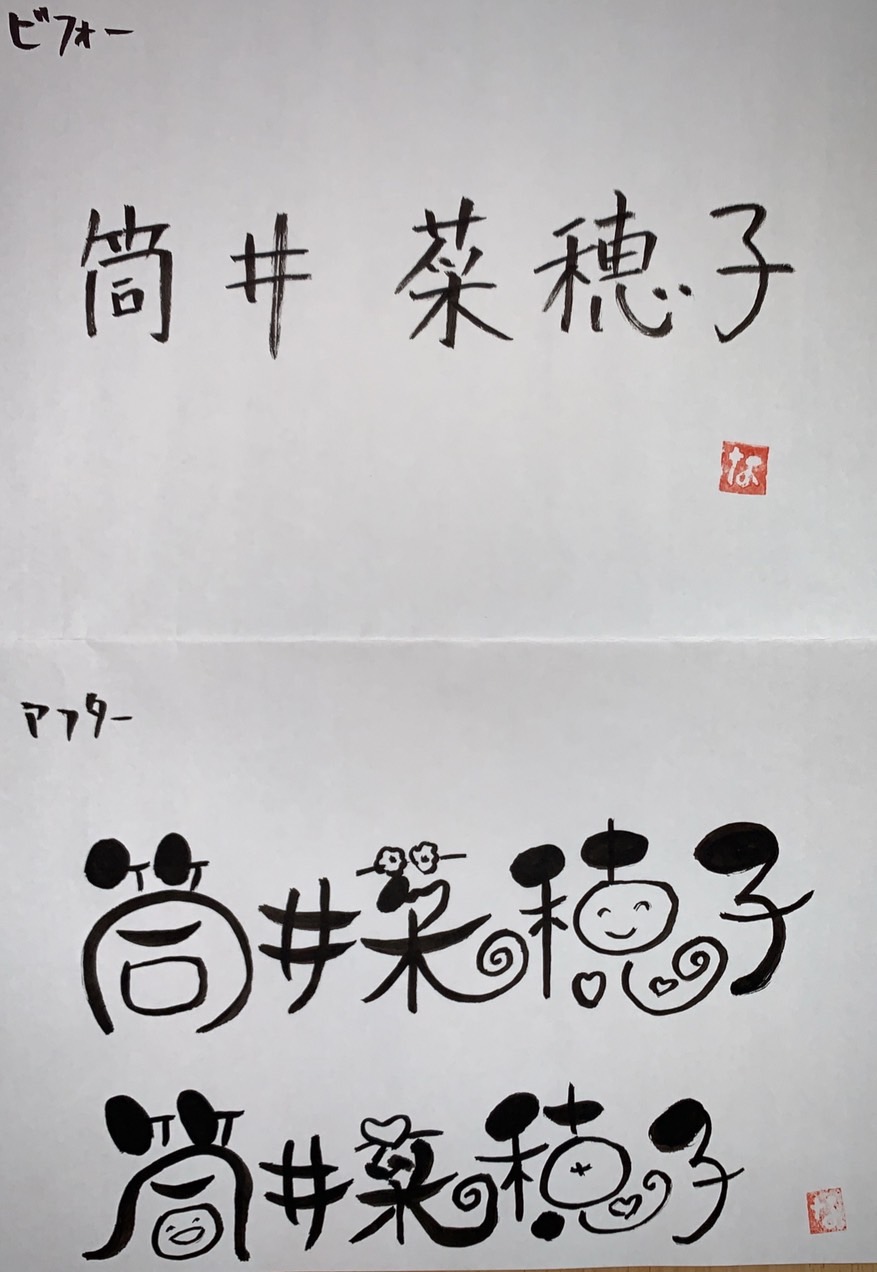 ビフォー
筒井 菜穂子
な
アフター
筒井菜穂子
筒井菜穂子